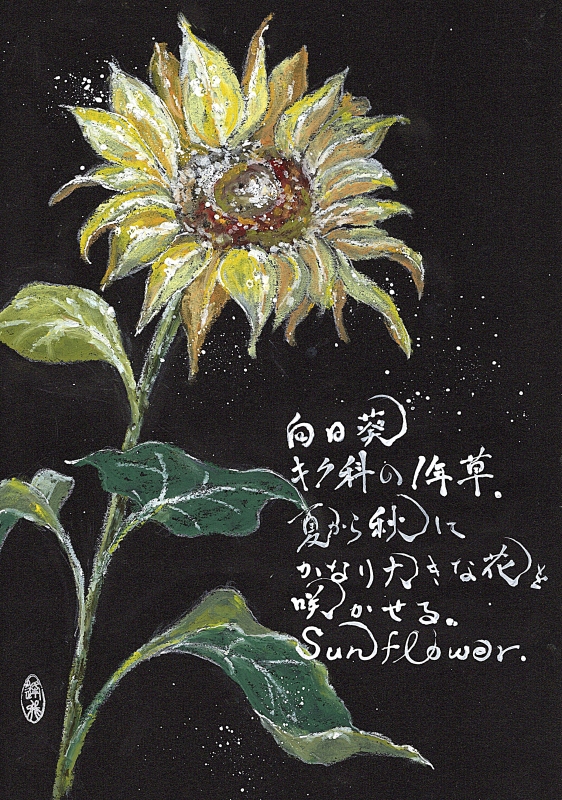 向日葵
キク科の1年草.
夏から秋に
かなり大きな花を
咲かせる。
Sunflower.